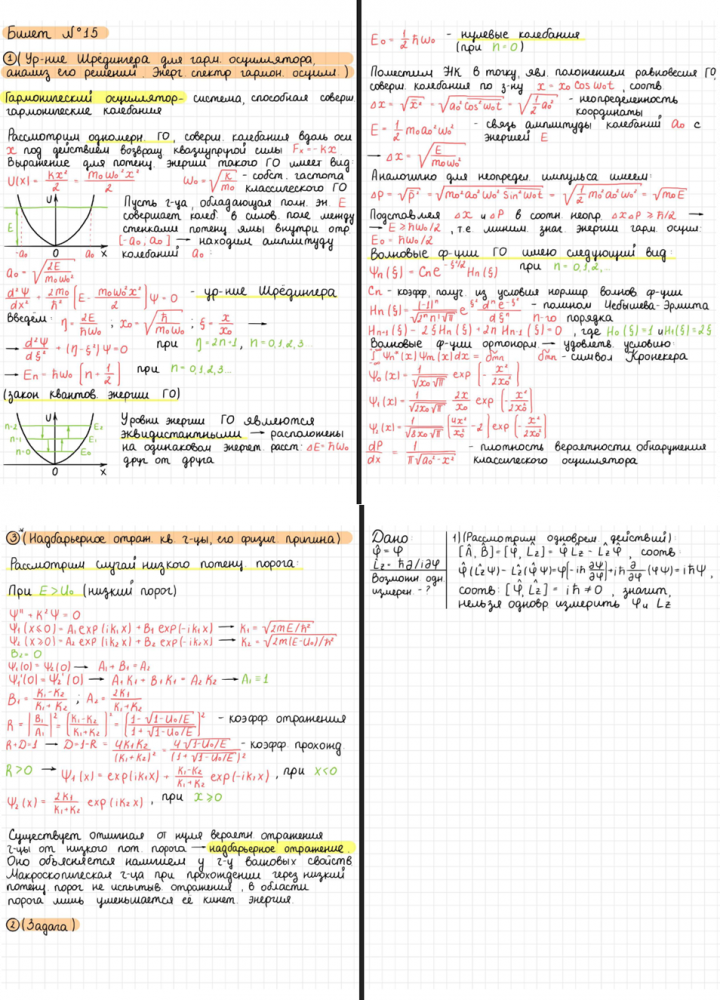 Билет №15
① (Ур-ние Шрёдингера для гарм. осциллятора,
анализ его решений. Энерг спектр гармон. осцилл.)
Гармонический осциллятор- система, способная соверш
гармонические колебания
Рассмотрим одномерн. ГО, соверш. колебания вдоль оси
x под действием возвращ квазиупругой силы Fx=-kx.
Выражение для потенц. энергии такого ГО имеет вид:
U(x) = kx²/2 = m₀ω₀²x²/2   ω₀=√(k/m₀) - собст. частота
классического ГО
Пусть ч-ца, обладающая полн. эн. E
совершает колеб. в силов. поле между
стенками потенц. ямы внутри отр
[-a₀, a₀] → находим амплитуду
колебаний a₀:
U
E
-a₀ 0 a₀ x
a₀ = √(2E/m₀ω₀²)
d²Ψ/dx² + 2m₀/ħ² [E - m₀ω₀²x²/2] Ψ = 0 - ур-ние Шрёдингера
Введём: η = 2E/ħω₀, x₀ = √(ħ/m₀ω₀); ξ = x/x₀ →
→ d²Ψ/dξ² + (η-ξ²)Ψ=0 при η=2n+1, n=0,1,2,3
→ En = ħω₀ [n + 1/2] при n=0,1,2,3...
(закон квантов. энергии ГО)
U
n=2 E₂
n=1 E₁
n=0 E₀
0 x
Уровни энергии ГО являются
эквидистантными → расположены
на одинаковом энергет. расст: ΔE=ħω₀
друг от друга
E₀ = 1/2 ħω₀ - нулевые колебания
(при n=0)
Поместим НК в точку, явл. положением равновесия ГО,
соверш. колебания по з-ну x = x₀ Cos ω₀t, соотв.
Δx = √x̄² = √(a₀² cos²ω₀t) = √(1/2 a₀²) - неопределенность
координаты
E = 1/2 m₀a₀²ω₀² - связь амплитуды колебаний a₀ с
энергией E
→ Δx = √(E/m₀ω₀²)
Аналогично для неопредел. импульса имеем:
ΔP = √p̄² = √(m₀²a₀²ω₀² Sin²ω₀t) = √(1/2 m₀²a₀²ω₀²) = √(m₀E)
Подставляя Δx и ΔP в соотн. неопр. ΔxΔP ≥ ħ/2 →
→ E ≥ ħω₀/2, т.е. миним. знач. энергии гарм. осцил:
E₀ = ħω₀/2
Волновые ф-ции ГО имею следующий вид:
Ψn(ξ) = Cn e^(-ξ²/2) Hn(ξ) при n=0,1,2,..
Cn - коэфф, получ. из условия нормир волнов. ф-ции
Hn(ξ) = (-1)ⁿ/√(2ⁿ n! √π) e^(ξ²) dⁿe^(-ξ²)/dξⁿ - полином Чебышева-Эрмита
n-го порядка
Hn+1(ξ) - 2ξHn(ξ) + 2n Hn-1(ξ)=0, где H₀(ξ)=1 и H₁(ξ)=2ξ
Волновые ф-ции ортонорм. → удовлетв. условию:
∫Ψn*(x)Ψm(x)dx = δmn   δmn - символ Кронекера
Ψ₀(x) = 1/√(x₀√π) exp[-x²/2x₀²]
Ψ₁(x) = 1/√(2x₀√π) 2x/x₀ exp[-x²/2x₀²]
Ψ₂(x) = 1/√(8x₀√π) [4x²/x₀² - 2] exp[-x²/2x₀²]
dP/dx = 1/(π√(a₀²-x²)) - плотность вероятности обнаружения
классического осциллятора
③* (Надбарьерное отраж. кв ч-цы, его физич. причина)
Рассмотрим случай низкого потенц. порога:
При E>U₀ (низкий порог)
Ψ" + K²Ψ = 0
Ψ₁(x≤0) = A₁exp(ik₁x) + B₁exp(-ik₁x) → K₁ = √(2mE/ħ²)
Ψ₂(x≥0) = A₂exp(ik₂x) + B₂exp(-ik₂x) → K₂ = √(2m(E-U₀)/ħ²)
B₂=0
Ψ₁(0) = Ψ₂(0) → A₁ + B₁ = A₂
Ψ₁'(0) = Ψ₂'(0) → A₁K₁ + B₁K₁ = A₂K₂ → A₁=1
B₁ = (K₁-K₂)/(K₁+K₂); A₂ = 2K₁/(K₁+K₂)
R = |B₁/A₁|² = [(K₁-K₂)/(K₁+K₂)]² = [(1-√(1-U₀/E))/(1+√(1-U₀/E))]² - коэфф отражения
R+D=1 → D=1-R = 4K₁K₂/(K₁+K₂)² = 4√(1-U₀/E)/(1+√(1-U₀/E))² - коэфф. прохожд
R>0 → Ψ₁(x) = exp(ik₁x) + (K₁-K₂)/(K₁+K₂) exp(-ik₁x), при x<0
Ψ₂(x) = 2K₁/(K₁+K₂) exp(ik₂x), при x≥0
Существует отличная от нуля вероятн. отражения
ч-цы от низкого пот. порога → надбарьерное отражение.
Оно объясняется наличием у ч-ц волновых свойств
Макроскопическая ч-ца при прохождении через низкий
потенц. порог не испытыв. отражения, в области
порога лишь уменьшается её кинет. энергия.
② (Задача)
Дано:
φ̂ = φ
L̂z = ħ∂/i∂φ
Возможн одн.
измерен. - ?
1) (Рассмотрим одноврем. действий):
[Â, B̂] = [φ̂, L̂z] = φ̂ L̂z - L̂z φ̂, соотв:
φ̂(L̂zΨ) - L̂z(φ̂Ψ) = φ[-iħ ∂Ψ/∂φ] + iħ ∂/∂φ (φΨ) = iħΨ,
соотв: [φ̂, L̂z] = iħ ≠ 0, значит,
нельзя одновр измерить φ и Lz